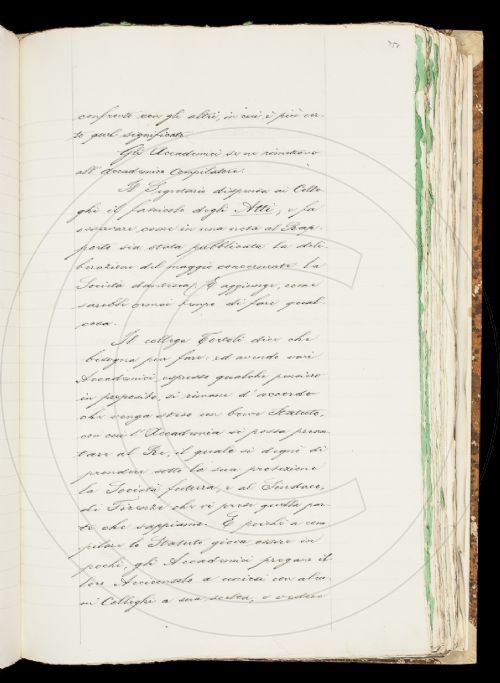 confronto con gli altri, in cui è più cer-
to quel significato.
Gli Accademici se ne rimettono
all'Accademico Compilatore.
Il Segretario dispensa ai Colle-
ghi il fascicolo degli Atti, e fa
osservare come in una nota al Rap-
porto sia stata pubblicata la deli-
berazione del maggio concernente la
Società dantesca. E aggiunge, come
sarebbe ormai tempo di fare qual-
cosa.
Il collega Tortoli dice che
bisogna pur fare: ed avendo vari
Accademici espresso qualche pensiero
in proposito, si rimane d'accordo
che venga steso un breve Statuto,
con cui l'Accademia si possa presen-
tare al Re, il quale si degni di
prendere sotto la sua protezione
la Società, e al Sindaco
di Firenze che vi prese quella par-
te che sappiamo. E perché a com-
pilare lo Statuto giova essere in
pochi, gli Accademici pregano il
loro Arciconsolo a unirsi con alcu-
ni Colleghi a sua scelta, e vedere